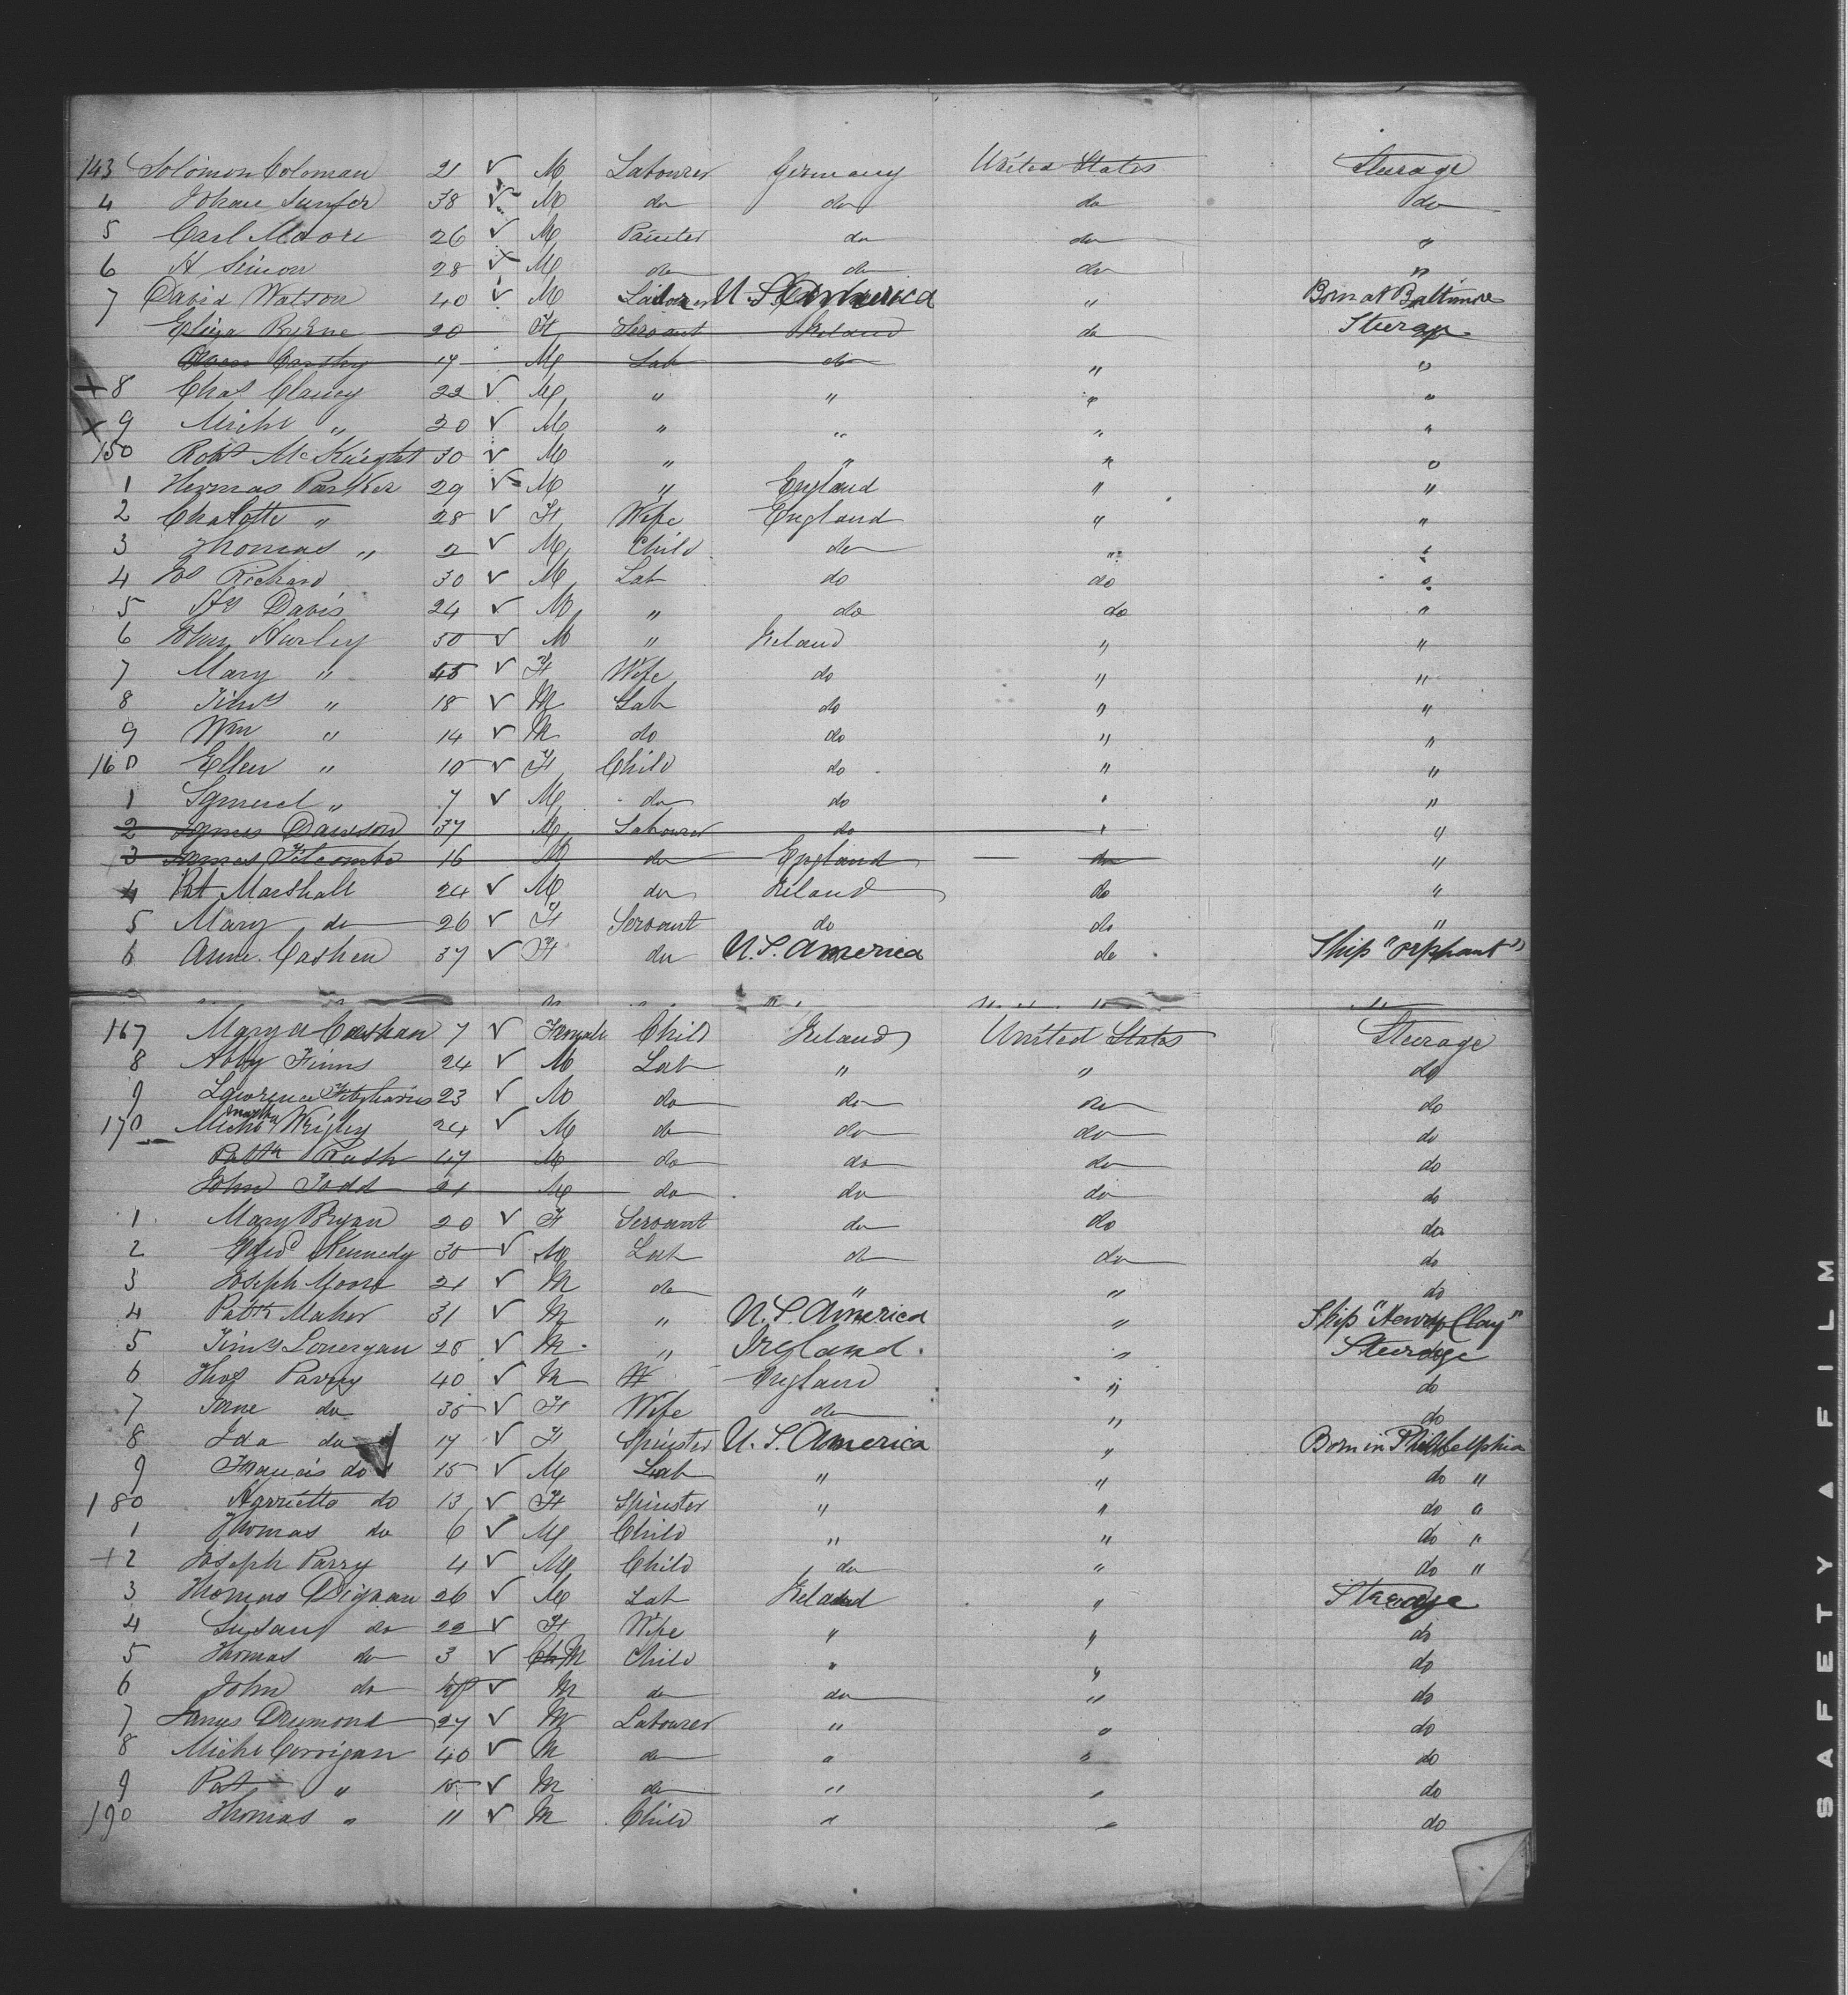 143 Solomon Coloman 21 ✓ M Labourer Germany United States Steerage
4 Johan Sunfer 38 ✓ M do do do do
5 Carl Moore 26 ✓ M Painter do do "
6 H Simon 28 ✓ M do do do "
7 David Watson 40 ✓ M Labourer U.S. America " Born at Baltimore
Eliza Birne 20 F Servant Ireland do Steerage
Owen Carthy 17 M Lab do " "
+8 Chas Clancy 22 ✓ M " " " "
x9 Michl " 20 ✓ M " " " "
150 Robt McKnight 30 ✓ M " " " "
1 Hermas Parker 29 ✓ M " England " "
2 Chalotte " 28 ✓ F Wife England " "
3 Thomas " 2 ✓ M Child do " "
4 Richard 30 ✓ M Lab do do "
5 Hy Davis 24 ✓ M " do do "
6 John Hurley 50 ✓ M " Ireland " "
7 Mary " 45 ✓ F Wife do " "
8 Timy " 18 ✓ M Lab do " "
9 Wm " 14 ✓ M do do " "
160 Ellen " 10 ✓ F Child do " "
1 Samuel " 7 ✓ M do do " "
2 James Dawson 37 M Labourer do " "
3 James Titcombe 16 M do England do "
4 Pat Marshall 24 ✓ M do Ireland do "
5 Mary do 26 ✓ F Servant do do "
6 Anne Cashen 37 ✓ F do U.S. America do Ship "orphant"
167 Mary A Cashan 7 ✓ Female Child Ireland United States Steerage
8 Abby Finns 24 ✓ M Lab " " do
9 Lawrence 23 ✓ M do do do do
170 Michl Murphy Wrigley 24 ✓ M do do do do
Pattk Rush 47 M do do do do
John Todd 21 M do do do do
1 Mary Bryan 20 ✓ F Servant do do do
2 Edwd Kennedy 30 ✓ M Lab do do do
3 Joseph Moore 21 ✓ M do " " do
4 Pattk Maher 31 ✓ M " U.S. America " Ship "Henry Clay"
5 Timy Lonergan 28 ✓ M " Ireland. " Steerage
6 Thos Parry 40 ✓ M England " do
7 Jane do 35 ✓ F Wife do " do
8 Ida do 17 ✓ F Spinster U.S. America " Born in Philadelphia
9 Francis do 15 ✓ M Lab " " do "
180 Harrietta do 13 ✓ F Spinster " " do "
1 Thomas do 6 ✓ M Child " " do "
+2 Joseph Parry 4 ✓ M Child do " do "
3 Thomas Dignan 26 ✓ M Lab Ireland " Steerage
4 Susan do 22 ✓ F Wife " " do
5 Thomas do 3 ✓ Ch M Child " " do
6 John do ✓ M do do " do
7 James Drumond 27 ✓ M Labourer " " do
8 Michl Corrigan 40 ✓ M do " " do
9 Pat " 15 ✓ M do " " do
190 Thomas " 11 ✓ M Child " " do
SAFETY A FILM